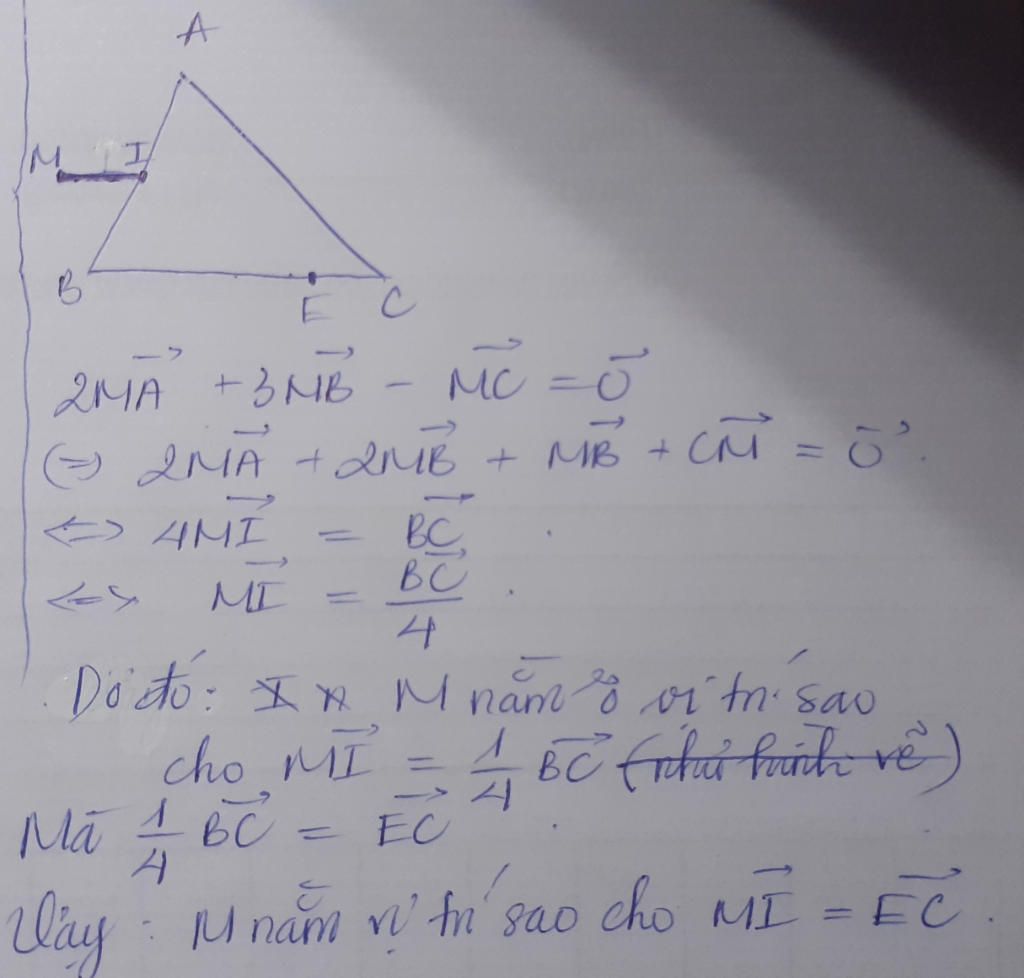 A
M I
B E C
2MA⃗ + 3MB⃗ - MC⃗ = 0⃗
(=) 2MA⃗ + 2MB⃗ + MB⃗ + CM⃗ = 0⃗.
<=> 4MI⃗ = BC⃗.
<=> MI⃗ = BC⃗/4.
Do đó: M nằm ở vị trí sao
cho MI⃗ = 1/4 BC⃗ (như hình vẽ)
Mà 1/4 BC⃗ = EC⃗.
Vậy: M nằm vị trí sao cho MI⃗ = EC⃗.